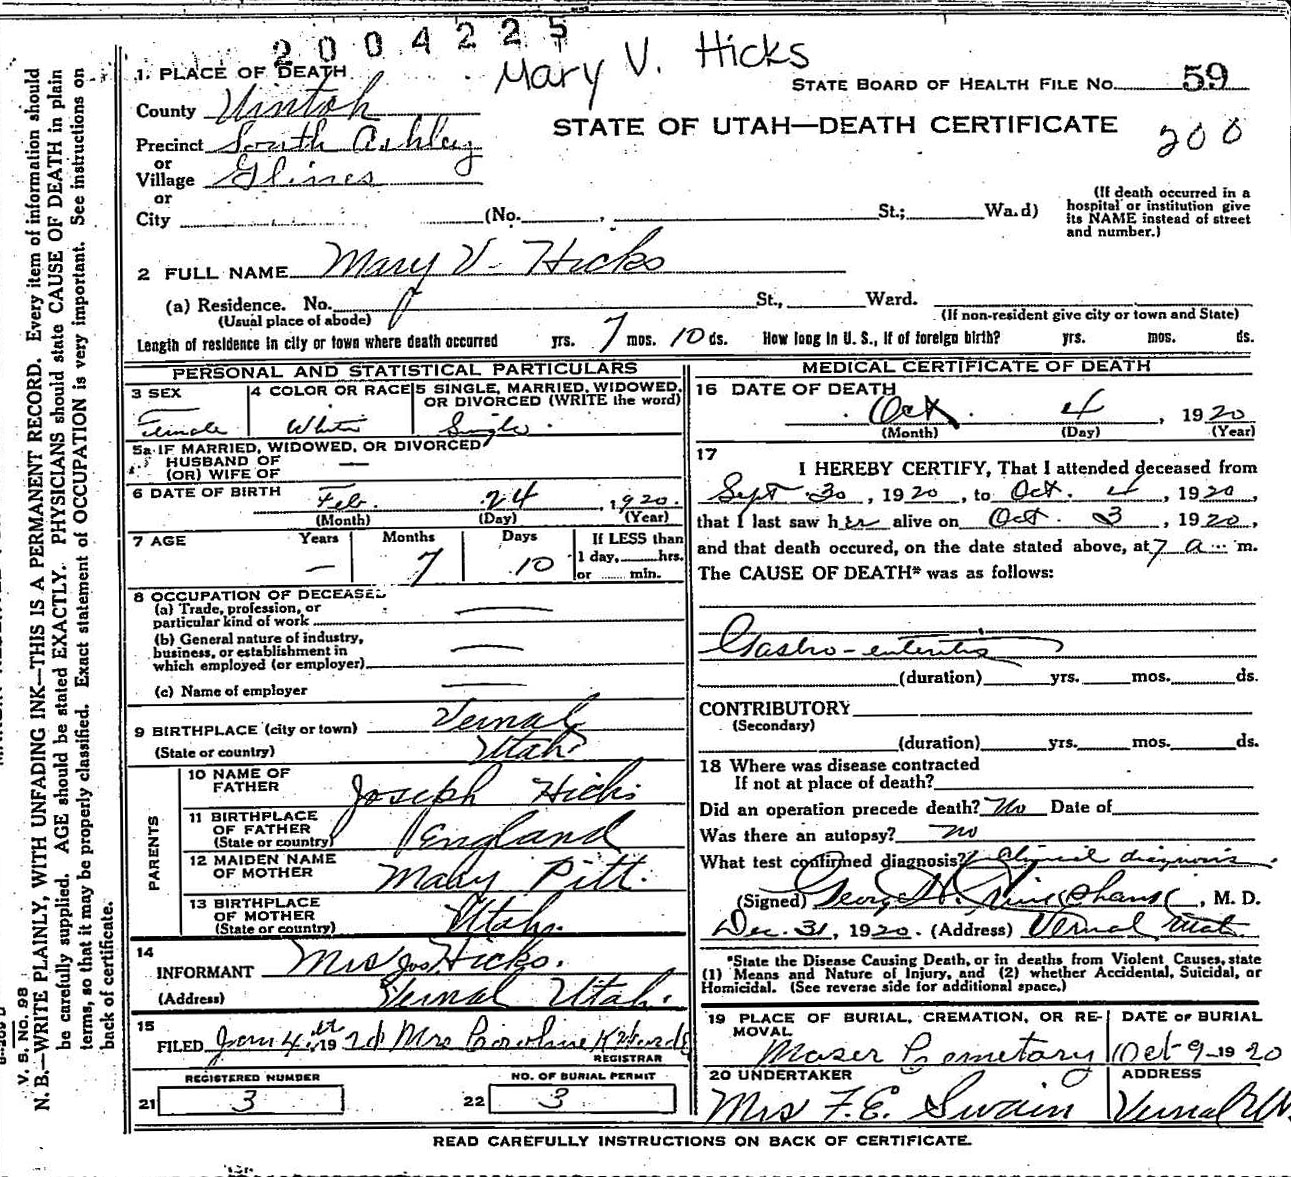 2004225
Mary V. Hicks
STATE BOARD OF HEALTH FILE No. 59
1. PLACE OF DEATH
County Uintah
STATE OF UTAH—DEATH CERTIFICATE
200
Precinct South Ashley
or
Village Glines
or
City (No. , St.; Wa.d)
(If death occurred in a
hospital or institution give
its NAME instead of street
and number.)
2 FULL NAME Mary V. Hicks
(a) Residence. No. St., Ward.
(Usual place of abode)
(If non-resident give city or town and State)
Length of residence in city or town where death occurred yrs. 7 mos. 10 ds. How long in U. S., if of foreign birth? yrs. mos. ds.
PERSONAL AND STATISTICAL PARTICULARS
3 SEX
Female
4 COLOR OR RACE
White
5 SINGLE, MARRIED, WIDOWED,
OR DIVORCED (WRITE the word)
Single
5a IF MARRIED, WIDOWED, OR DIVORCED
HUSBAND OF —
(OR) WIFE OF
6 DATE OF BIRTH Feb. 24, 1920.
(Month) (Day) (Year)
7 AGE Years Months Days If LESS than
1 day, hrs.
or min.
— 7 10
8 OCCUPATION OF DECEASED
(a) Trade, profession, or
particular kind of work —
(b) General nature of industry,
business, or establishment in
which employed (or employer) —
(c) Name of employer —
9 BIRTHPLACE (city or town) Vernal
(State or country) Utah
PARENTS
10 NAME OF
FATHER Joseph Hicks
11 BIRTHPLACE
OF FATHER
(State or country) England
12 MAIDEN NAME
OF MOTHER Mary Pitt.
13 BIRTHPLACE
OF MOTHER
(State or country) Utah.
14
INFORMANT Mrs Jos Hicks.
(Address) Vernal Utah.
15
FILED Jan 4th 19 21 Mrs Caroline
REGISTRAR
REGISTERED NUMBER
21 3
NO. OF BURIAL PERMIT
22 3
MEDICAL CERTIFICATE OF DEATH
16 DATE OF DEATH
Oct 4, 1920
(Month) (Day) (Year)
17
I HEREBY CERTIFY, That I attended deceased from
Sept. 30, 1920, to Oct. 4, 1920,
that I last saw her alive on Oct. 3, 1920,
and that death occured, on the date stated above, at 7 a m.
The CAUSE OF DEATH* was as follows:
Gastro-enteritis
(duration) yrs. mos. ds.
CONTRIBUTORY
(Secondary)
(duration) yrs. mos. ds.
18 Where was disease contracted
If not at place of death?
Did an operation precede death? No Date of
Was there an autopsy? no
What test confirmed diagnosis? Clinical diagnosis.
(Signed) George H. , M. D.
Dec. 31, 1920. (Address) Vernal, Utah
*State the Disease Causing Death, or in deaths from Violent Causes, state
(1) Means and Nature of Injury, and (2) whether Accidental, Suicidal, or
Homicidal. (See reverse side for additional space.)
19 PLACE OF BURIAL, CREMATION, OR RE-
MOVAL
Maser Cemetary
DATE OF BURIAL
Oct-9-1920
20 UNDERTAKER
Mrs F.E. Swain
ADDRESS
Vernal Ut.
READ CAREFULLY INSTRUCTIONS ON BACK OF CERTIFICATE.
V. S. No. 98
N. B.—WRITE PLAINLY, WITH UNFADING INK—THIS IS A PERMANENT RECORD. Every item of information should
be carefully supplied. AGE should be stated EXACTLY. PHYSICIANS should state CAUSE OF DEATH in plain
terms, so that it may be properly classified. Exact statement of OCCUPATION is very important. See instructions on
back of certificate.